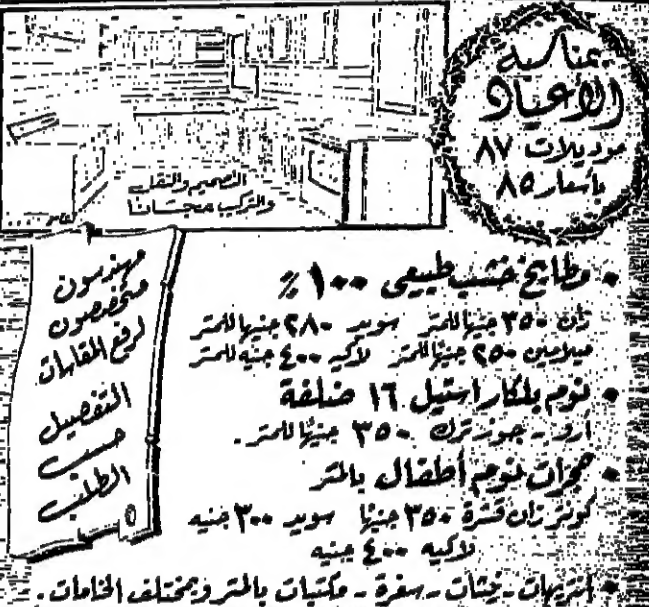 بمناسبة
الأعياد
موديلات ٨٧
بأسعار ٨٥
التصميم والنقل
والتركيب مجانا
مهندسون
متخصصون
لرفع المقاسات
التفصيل
حسب
الطلب
• مطابخ خشب طبيعى ١٠٠٪
زان ٣٥٠ جنيها للمتر سويد ٢٨٠ جنيها للمتر
ميلامين ٢٥٠ جنيها للمتر لاكيه ٤٠٠ جنيه للمتر
• نوم بلكار استيل ١٦ ضلفة
ارو - جوز ترك ٣٥٠ جنيها للمتر .
• حجرات نوم أطفال بالمتر
كونتر زان قشرة ٣٥٠ جنيها سويد ٣٠٠ جنيه
لاكيه ٤٠٠ جنيه
• انتريهات - نيشات - سفرة - مكتبات بالمتر وبمختلف الخامات .